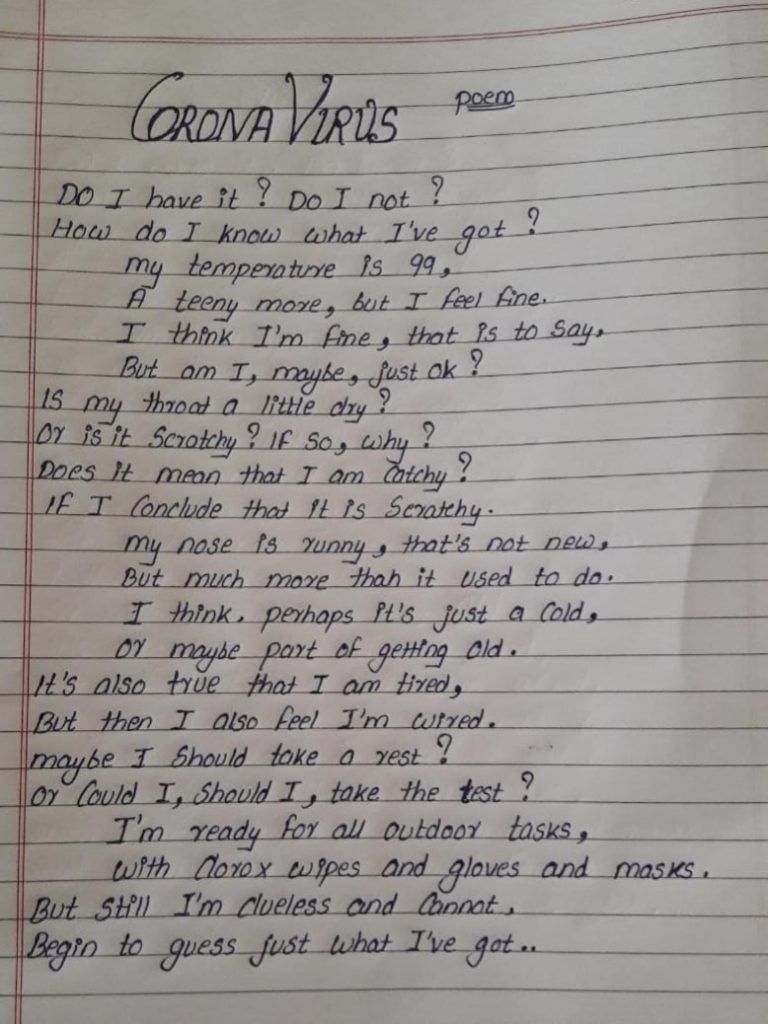 CORONA VIRUS poem
DO I have it ? Do I not ?
How do I know what I've got ?
my temperature is 99,
A teeny more, but I feel fine.
I think I'm fine, that is to say,
But am I, maybe, just ok ?
Is my throat a little dry ?
Or is it Scratchy ? If so, why ?
Does it mean that I am Catchy ?
If I Conclude that it is Scratchy.
my nose is runny, that's not new,
But much more than it used to do.
I think. perhaps it's just a Cold,
Or maybe part of getting old.
It's also true that I am tired,
But then I also feel I'm wired.
maybe I Should take a rest ?
Or Could I, Should I, take the test ?
I'm ready for all outdoor tasks,
with Clorox wipes and gloves and masks.
But Still I'm Clueless and Cannot,
Begin to guess just what I've got..